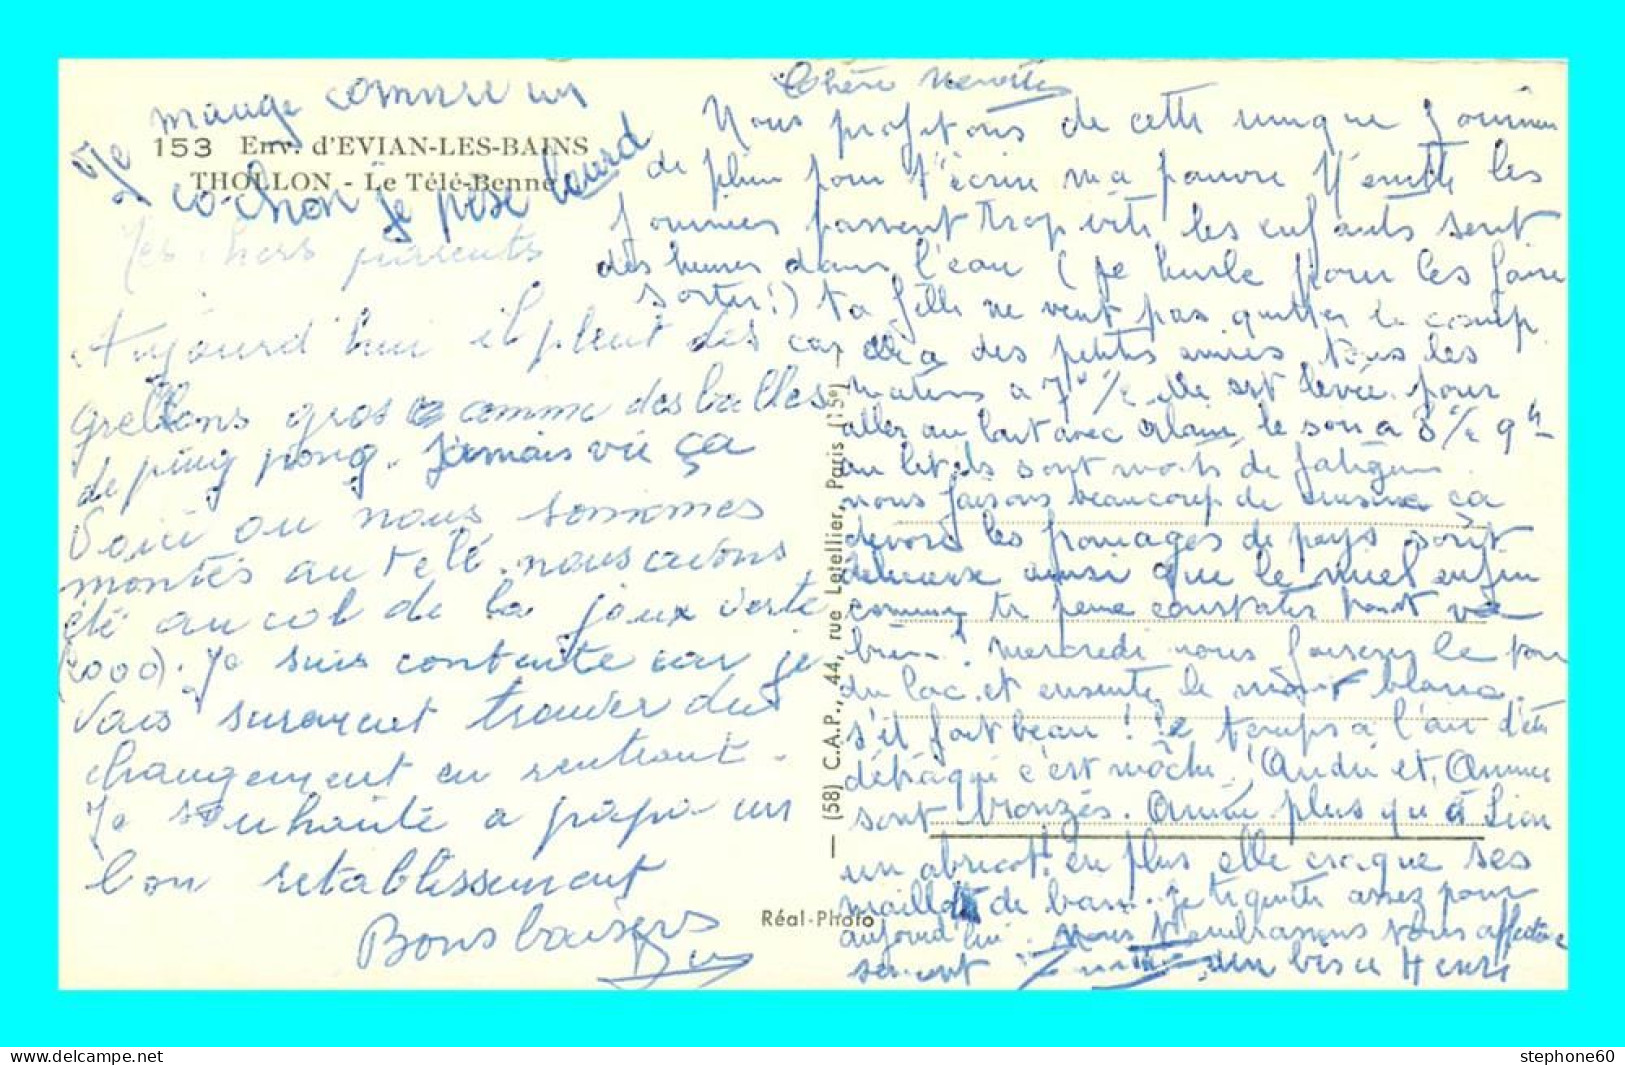 Je mange comme un
cochon je pèse lourd
153 Env. d'EVIAN-LES-BAINS
THOLLON - Le Télé-Benne
Mes chers parents
Aujourd'hui il pleut des
grellons gros comme des balles
de ping pong. Jamais vu ça
Voici ou nous sommes
montés au télé. nous avons
été au col de la joux verte
(2000). Je suis contente car je
vais surement trouver du
changement en rentrant.
Je souhaite a papa un
bon retablissement
Bons baisers
— (58) C.A.P., 44, rue Letellier, Paris (15e) —
Réal-Photo
Chère
Nous profitons de cette unique
de pluie pour t'écrire ma pauvre les
journées passent trop vite les enfants sont
des heures dans l'eau (je hurle pour les faire
sortir!) ta fille ne veut pas quitter le camp
elle a des petites amies tous les
matins a 7h 1/2 elle est levée pour
aller au lait avec Alain, le soir a 8h 1/2 9h
au lit ils sont morts de fatigue
nous faisons beaucoup de cuisine ça
devore les fromages de pays sont
délicieux ainsi que le miel enfin
comme tu peux constater tout va
bien! Mercredi nous faisons le tour
du lac et ensuite le mont blanc
s'il fait beau! le temps a l'air d'être
détraqué c'est moche! André et Annie
sont bronzés. Annie plus qu'à Lion
un abricot! en plus elle craque ses
maillots de bain. je te quitte assez pour
aujourd'hui. Nous t'embrassons tous affectueu
sement un bis a Henri